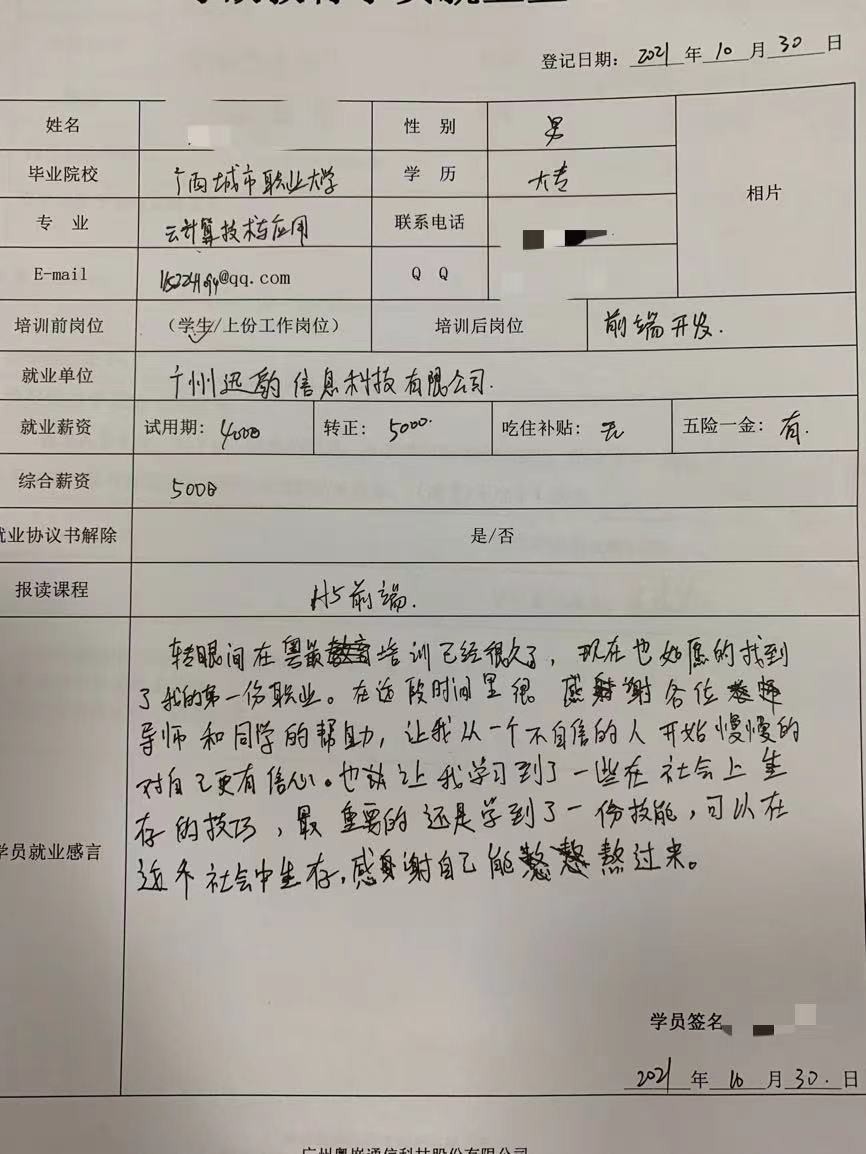 登记日期: 2021 年 10 月 30 日
姓名 性 别 男 相片
毕业院校 广西城市职业大学 学 历 大专
专 业 云计算技术与应用 联系电话
E-mail @qq.com Q Q
培训前岗位 (学生/上份工作岗位) 培训后岗位 前端开发.
就业单位 广州迅 信息科技有限公司.
就业薪资 试用期: 4000 转正: 5000. 吃住补贴: 无 五险一金: 有.
综合薪资 5000
就业协议书解除 是/否
报读课程 H5前端.
转眼间在粤嵌 培训已经很久了,现在也如愿的找到
了我的第一份职业。在这段时间里很 感 谢各位
导师和同学的帮助,让我从一个不自信的人开始慢慢的
对自己更有信心。也 让我学习到了一些在社会上生
存的技巧,最重要的还是学到了一份技能,可以在
这个社会中生存,感谢自己能 熬过来。
学员就业感言
学员签名
2021 年 10 月 30. 日
广州粤嵌通信科技股份有限公司